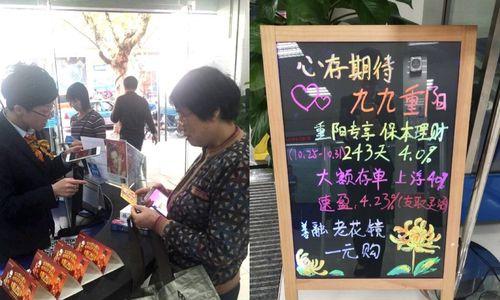 心存期待
九九重阳
重阳专享 保本理财
(10.25-10.31) 243天 4.0%
大额存单 上浮40%
速盈 4.23%(支取灵活)
善融 老花镜
一元购